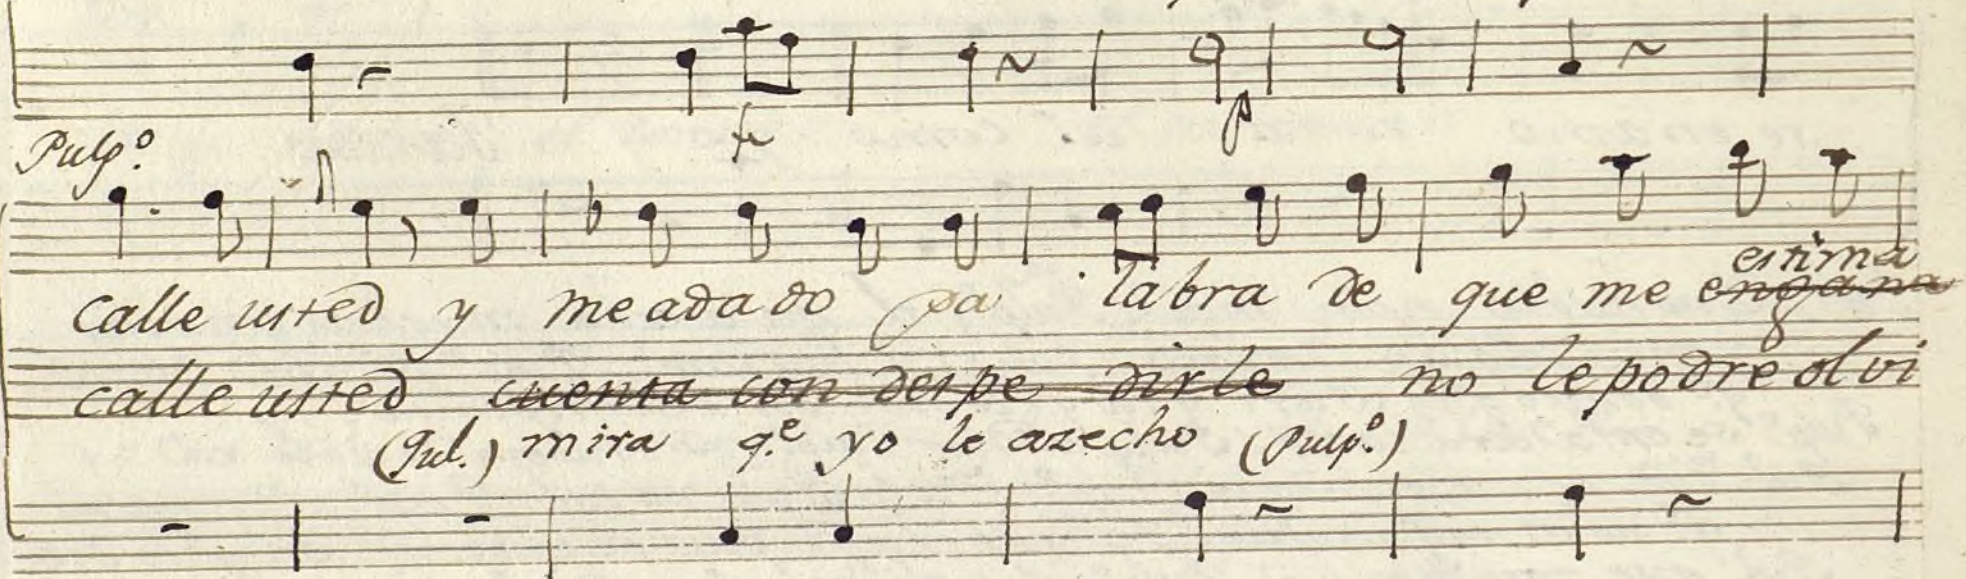 fe p
Pulp.º
estima
calle usted y me a da do pa labra de que me engana
calle usted cuenta con despe dirle no le podre olvi
(Gul.) mira q.e yo le azecho (Pulp.º)